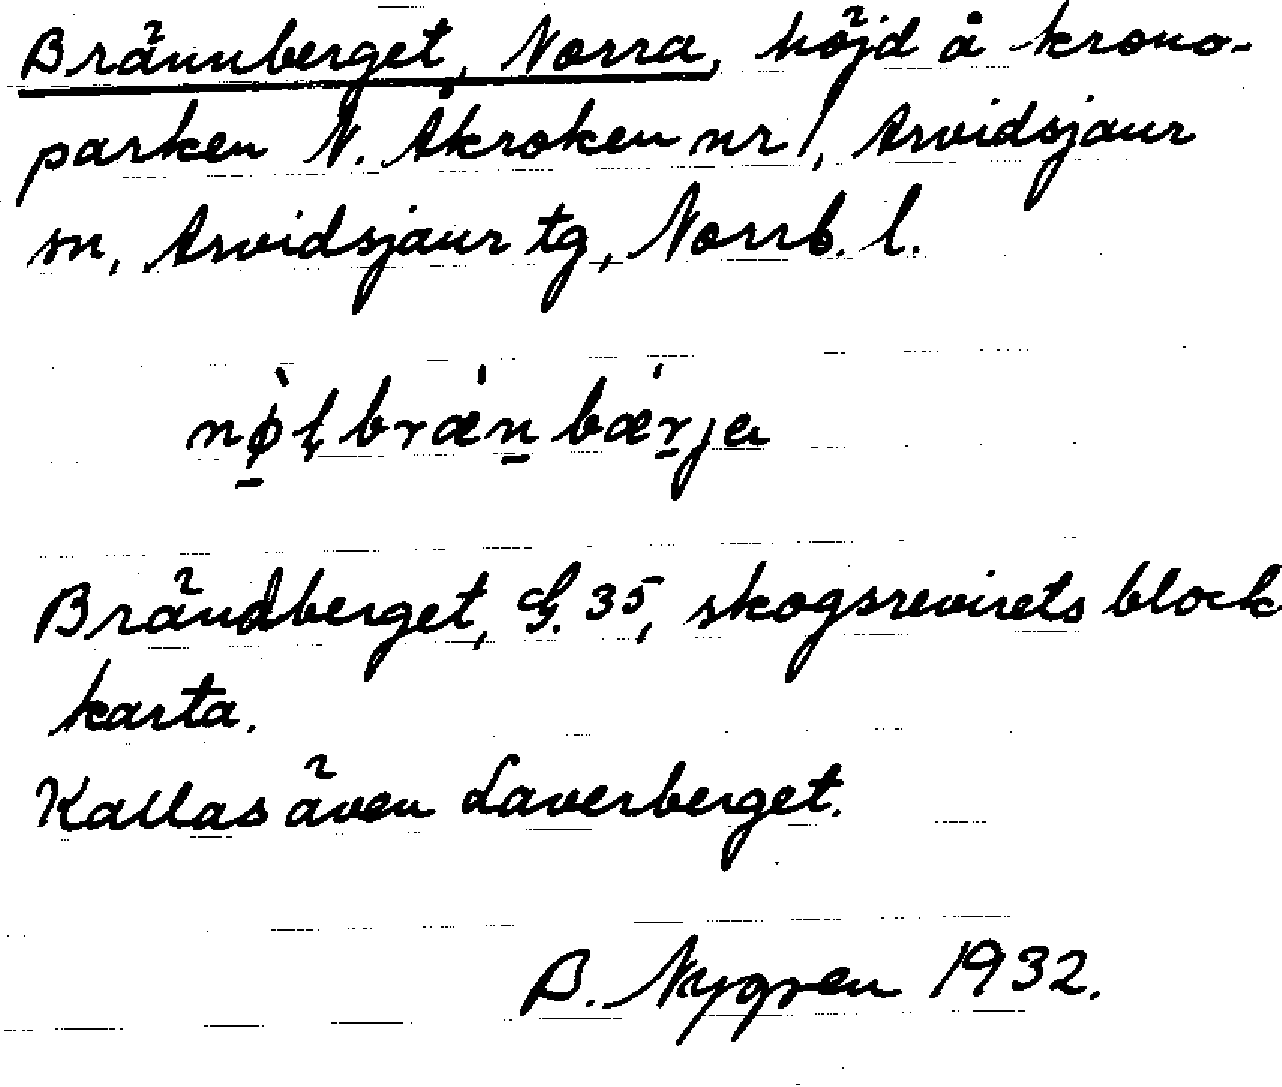 Brännberget, Norra, höjd å krono-
parken N. Åkroken nr 1, Arvidsjaur
sn, Arvidsjaur tg, Norrb. l.
nø̱̀ɭbræ̀ṉbæ̀ṟja
Brändberget, G. 35, skogsrevirets block
karta.
Kallas även Laverberget.
B. Nygren 1932.